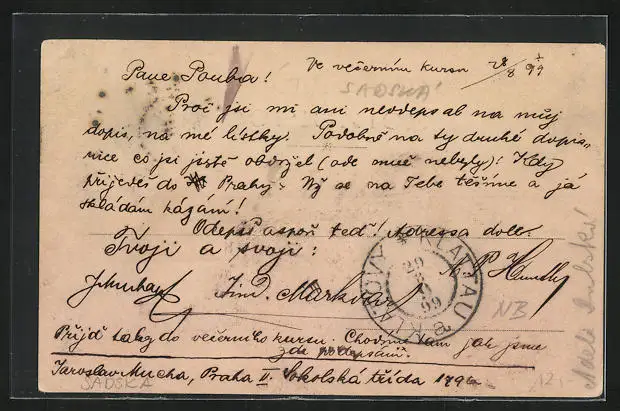 Ve večerním kursu 28/8 99
Pane Pouba!
SADSKÁ
Proč jsi mi ani neodepsal na můj
dopis, na mé lístky. Podobně na ty druhé dopis-
nice co jsi jistě obdržel (ode mně nebyly)! Kdy
přijedeš do Prahy? Již se na Tebe těšíme a já
skládám kázání!
Odepiš aspoň teď! Adressa dole.
Tvoji a svoji:
KLATTAU
KLATOVY
29
99
J. Mucha Jind. Markvart
NB
Přijď taky do večerního kursu. Chodíme tam jak jsme
zde podepsáni.
Jaroslav Mucha, Praha II. Sokolská třída 1796
SADSKA
12.